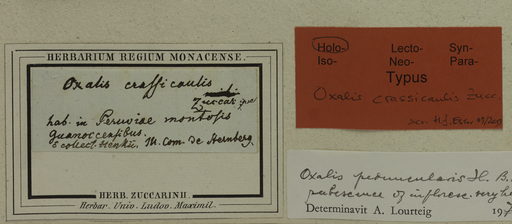 HERBARIUM REGIUM MONACENSE.
Oxalis crassicaulis
mihi
Zuccar.
hab. in Peruviae montosis
guanoccensibus.
e collect. Henkii. M. Com. de Sternberg.
HERB. ZUCCARINII.
Herbar. Univ. Ludov. Maximil.
Holo- Lecto- Syn-
Iso- Neo- Para-
Typus
Oxalis crassicaulis Zucc.
Oxalis peduncularis H. B.
pubescence of infloresc.
Determinavit A. Lourteig 197